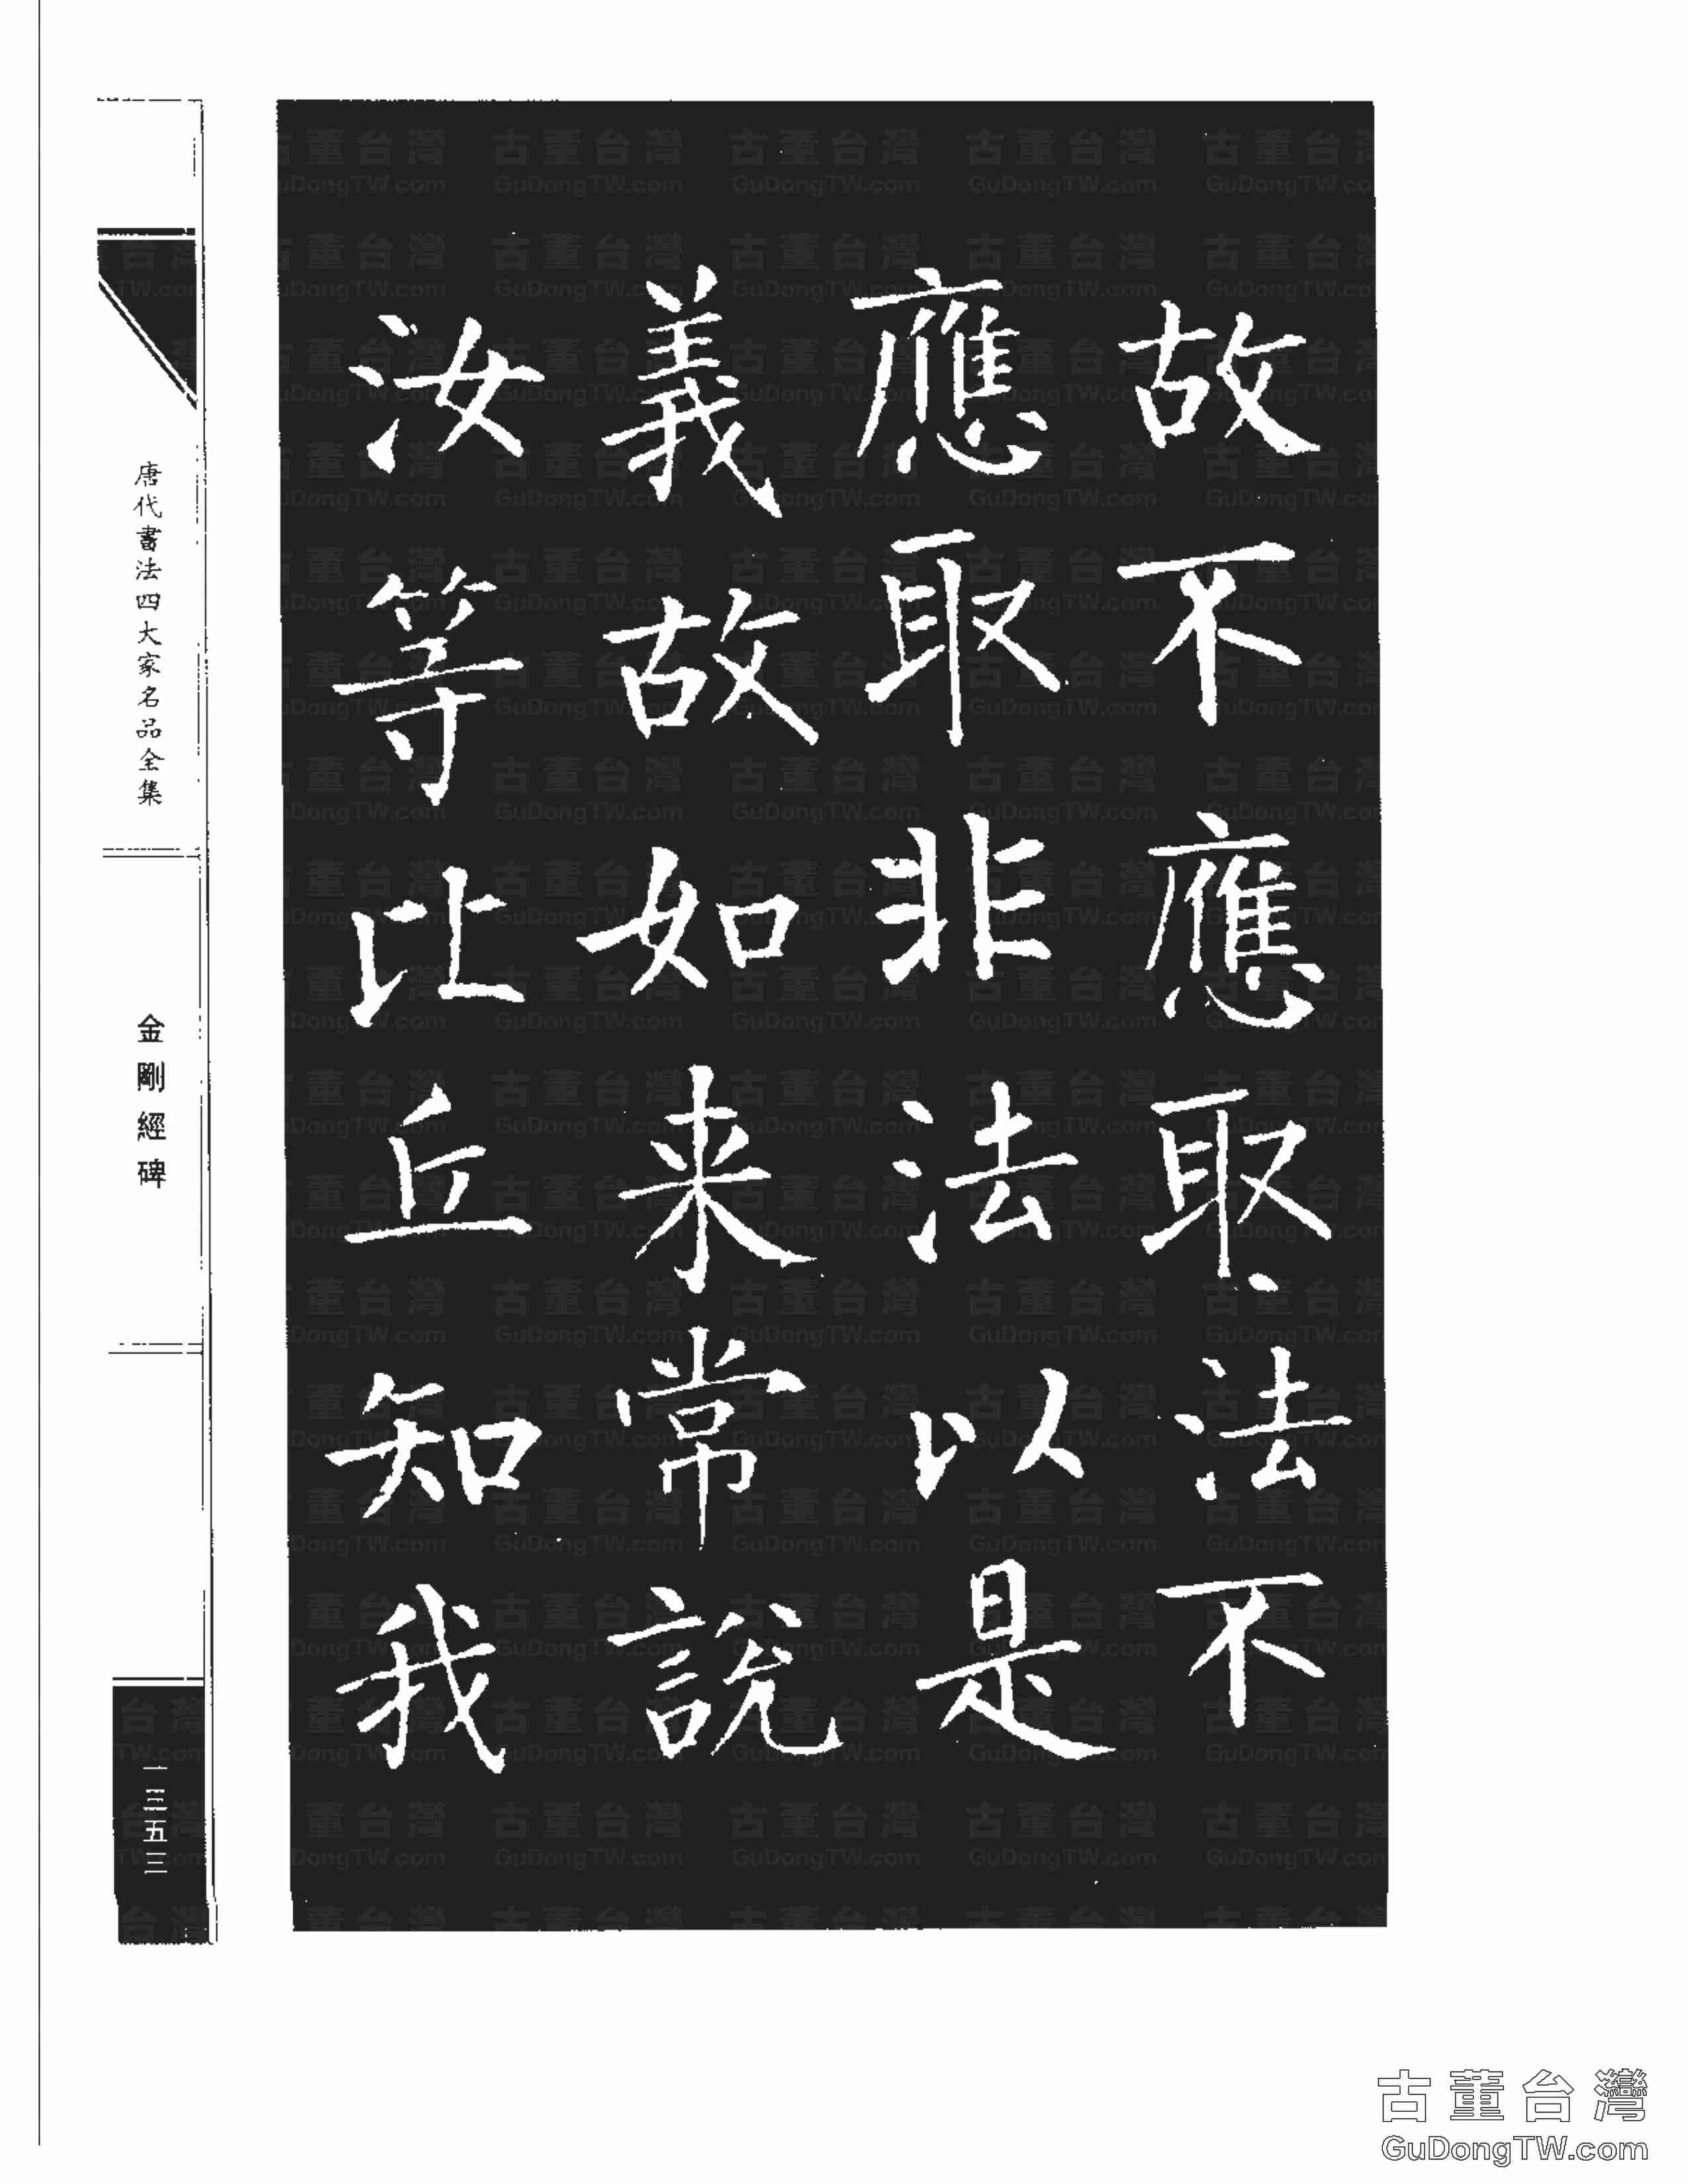 故不應取法不
應取非法以是
義故如来常說
汝等比丘知我
唐代書法四大家名品全集
金剛經碑
一三五三
古董台灣
GuDongTW.com